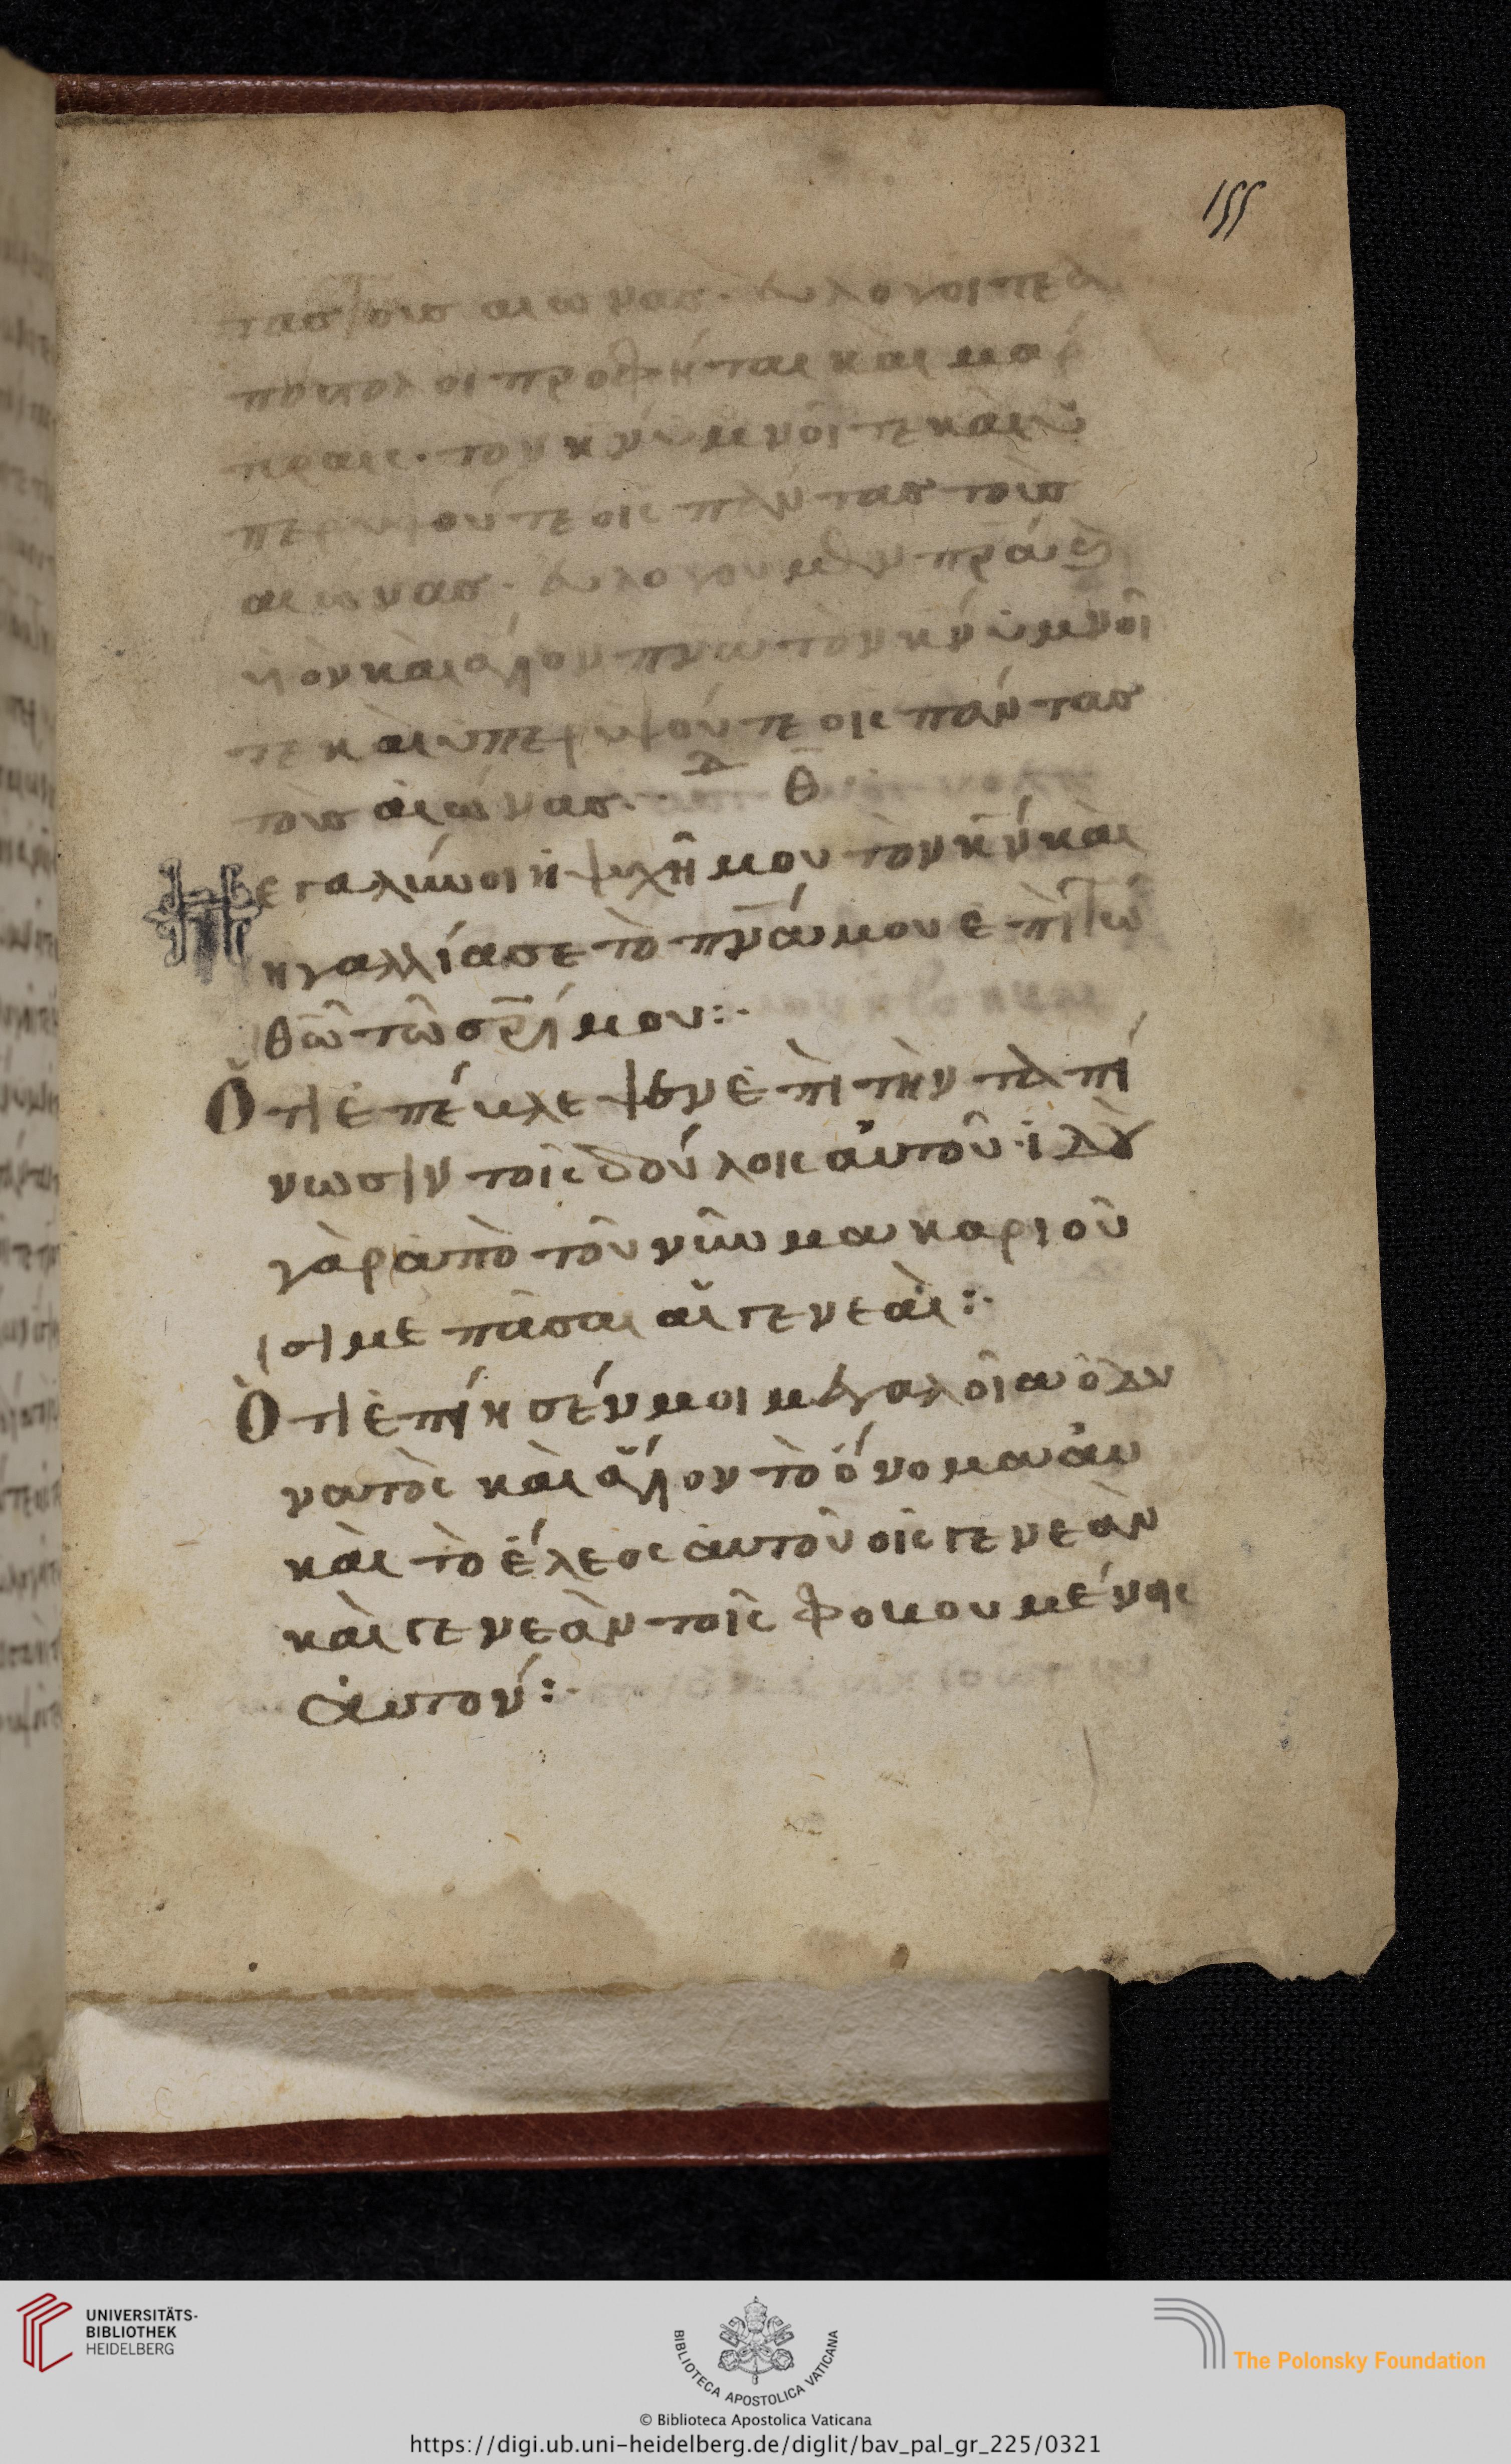 155
τασ τοὺσ αἰωνασ· ευλογοιτε α
ποστολοι προφήται καὶ μαρ
τυραις· τὸν κν ὑμνοῖτε καὶ ὑ
περυψούτε οις πάντασ τοὺσ
αιωνασ· ευλογουμεν πρα
κ ὸν καὶ ἅγιον πνα τὸν κν ὑμνοῖ
τε καὶ ὑπερυψούτε οις πάντασ
τοὺσ αἰώνασ· ωδ θ
Μεγαλύνοι ἡ ψυχῆ μου τὸν κν καὶ
ηγαλλίασε τὸ πνα μου ἐπὶ τῶ
θω τῶ σρι μου:·
Ὅτι ἐπέκλεψεν ἐπὶ τὴν ταπί
νωσιν τοῖς δούλοις αὐτοῦ· ἰδοὺ
γὰρ ἀπὸ τοῦ νῦν μακαριοῦ
σι με πᾶσαι αἵ γενεαὶ:·
Ὅτι ἐπίησέν μοι μεγαλοῖα ὁ δυ
νατὸς καὶ ἅγιον τὸ όνομα αὐ
καὶ τὸ έλεος αὐτοῦ οις γενεὰν
καὶ γενεὰν τοῖς φοκουμένοις
αὐτον:·
UNIVERSITÄTS-
BIBLIOTHEK
HEIDELBERG
BIBLIOTECA APOSTOLICA VATICANA
The Polonsky Foundation
© Biblioteca Apostolica Vaticana
https://digi.ub.uni-heidelberg.de/diglit/bav_pal_gr_225/0321